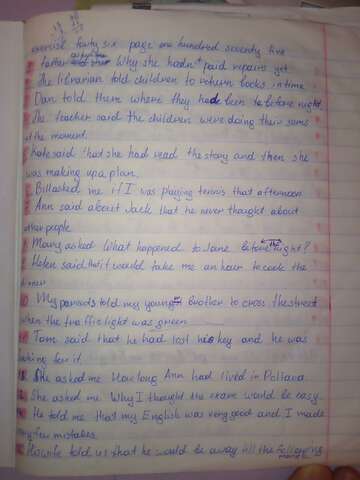 exercise forty six page one hundred seventy five
father asked her Why she hadn't paid repairs yet
The librarian told children to return books in time
Dan told them where they had been to before night
The teacher said the children were doing their sums
at the moment.
Kate said that she had read the story and then she
was making up a plan.
Bill asked me if I was playing tennis that afternoon
Ann said about Jack that he never thought about
other people
Mary asked What happened to Jane before the night?
Helen said that it would take me an hour to cook the
dinner
My parents told my younger brother to cross the street
when the traffic light was green
Tom said that he had lost his key and he was
looking for it.
She asked me How long Ann had lived in Poltava
She asked me Why I thought the exam would be easy
He told me that my English was very good and I made
very few mistakes
told us that he would be away till the following